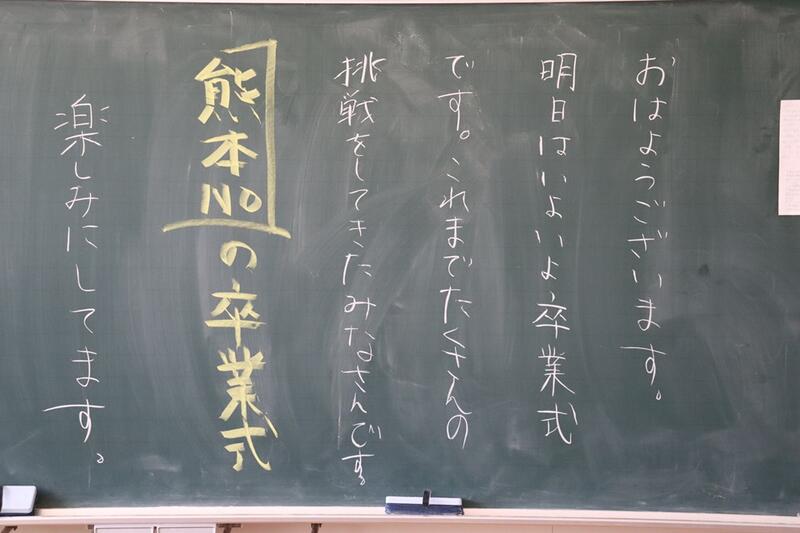 おはようございます。
明日はいよいよ卒業式
です。これまでたくさんの
挑戦をしてきたみなさんです。
熊本NO1の卒業式
楽しみにしてます。